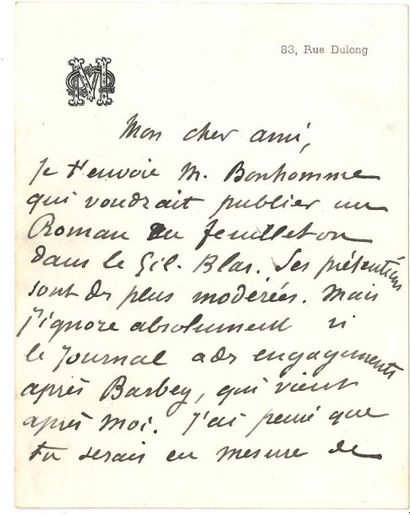 83, Rue Dulong
Mon cher ami,
Je t'envoie M. Bonhomme
qui voudrait publier un
Roman en feuilleton
dans le Gil-Blas. Ses prétentions
sont des plus modérées. Mais
j'ignore absolument si
le Journal a des engagements
après Barbey, qui vient
après moi. J'ai pensé que
tu serais en mesure de